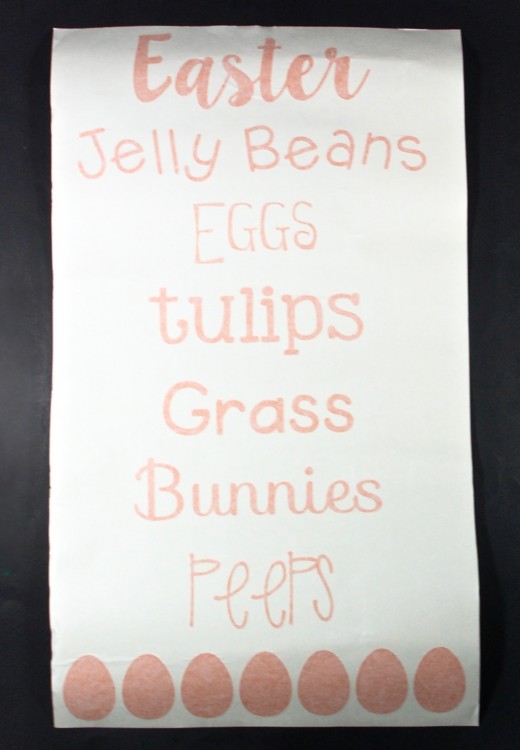 Easter
Jelly Beans
EGGS
tulips
Grass
Bunnies
PeePS